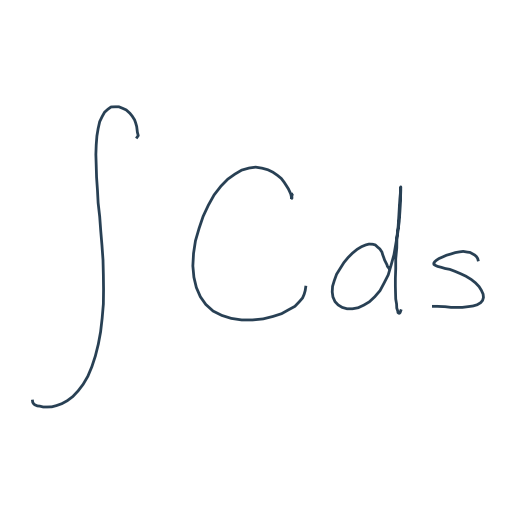 ∫ C ds